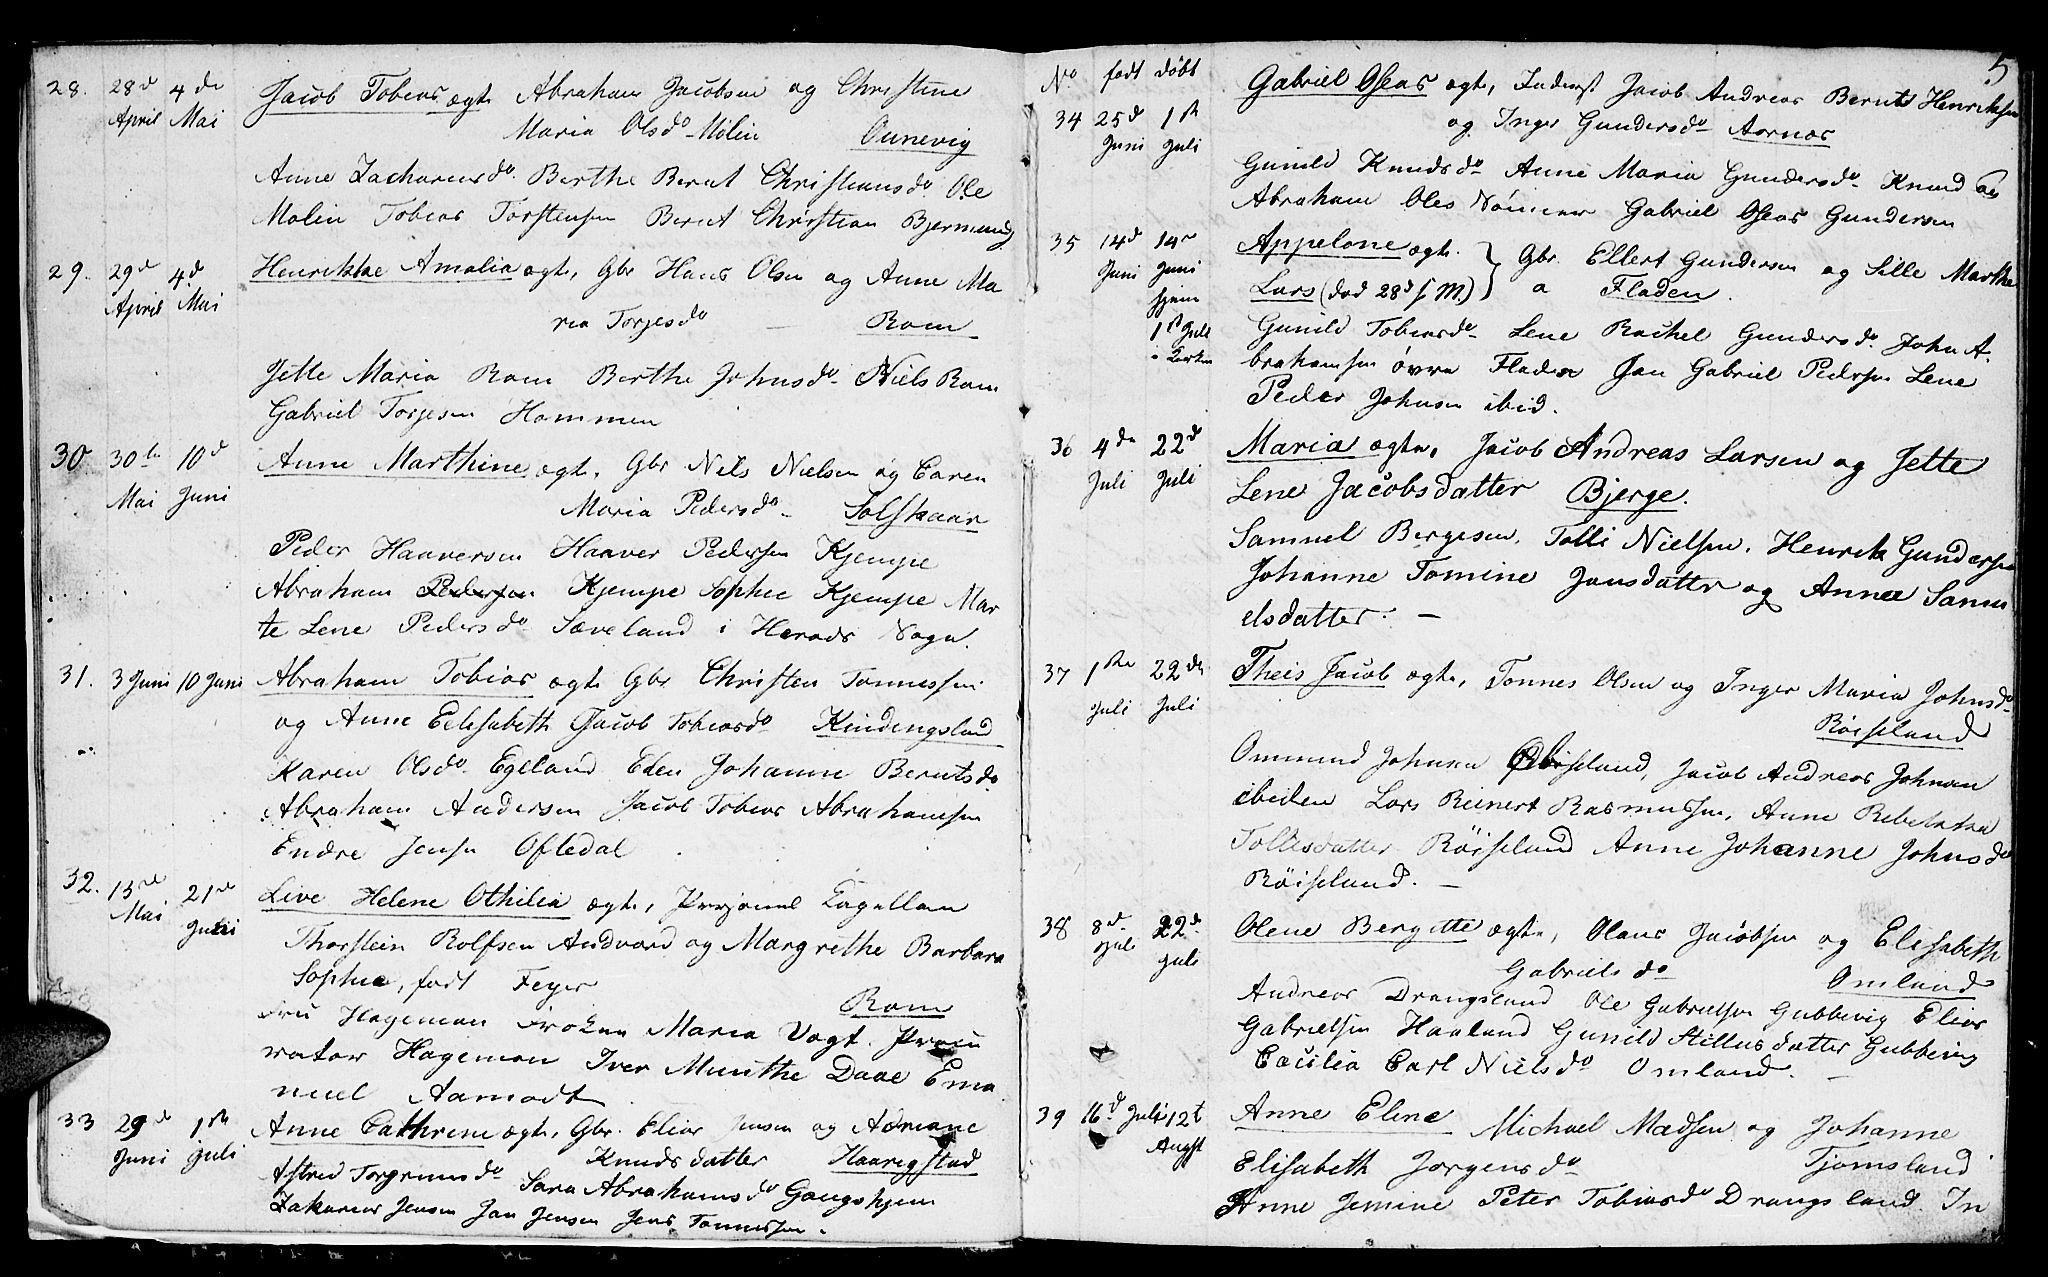 28. 28d 4de Jacob Tobias ægte Abraham Jacobsen og Christine
April Mai Maria Olsdr Molin Ounevig
Anne Zachariasdr. Berthe Bernt Christiansdr. Ole
Molin Tobias Torstensen Bernt Christian Bjermunds
29. 29d 4d Henrikke Amalia ægte, Gbr Hans Olsen og Anne Ma
April Mai ria Torjesdr Rom
Jette Maria Rom Berthe Johnsdr. Niels Rom
Gabriel Torjesen Hommen
30 30te 10d Anne Marthine ægte. Gbr Nils Nielsen og Caren
Mai Juni Maria Pedersdr Solskaar
Peder Haaversen Haaver Pedersen Kjempe
Abraham Pedersen Kjempe Sophie Kjempe Mar
te Lene Pedersdr Sæveland i Herads Sogn.
31. 3 Juni 10 Juni Abraham Tobias ægte Gbr Christen Tønnessen
og Anne Elisabeth Jacob Tobiasdr Kindingsland
Karen Olsdr. Egeland Elen Johanne Berntsdr.
Abraham Andersen Jacob Tobias Abrahamsen
Endre Jensen Ofledal
32. 13de 21de Live Helene Othilia ægte, Personel Capellan
Mai Juli Thorstein Rolfsen Andvord og Margrethe Barbara
Sophie, født Feyer
Rom
Fru Hageman Frøken Maria Vogt. Procu
rator Hageman Iver Munthe Daae Ema
nuel Aamodt
33 29d 1ste Anne Cathrine ægte, Gbr. Elias Jensen og Adriane
Juni Juli Knudsdatter Haarigstad
Astrid Torgrimsdr Sara Abrahamsdr Gangshjem
Zakarias Jensen Jan Jensen Jens Tønnessen.
5
No født døbt Gabriel Oseas ægte, Inderst Jacob Andreas Bernt Henriksen
34 25d 1ste og Inger Gundersdr Aarnæs
Juni Juli
Gunild Knudsdr Anne Maria Gundersdr. Knud og
Abraham Oles Sønner Gabriel Oseas Gundersen
35 14d 14de Appelone ægte. } Gbr. Ellert Gundersen og Sille Marthe
Juni Juni Lars (død 28d s M.) } a Fladen.
hjem
1ste Juli Gunild Tobiasdr Lene Rachel Gundersdr John A-
i Kirken brahamsen øvre Fladen Jan Gabriel Pedersen Lene
Peder Johnsen ibid.
36 4de 22d Maria ægte, Jacob Andreas Larsen og Jette
Juli Juli Lene Jacobsdatter Bjerge.
Samuel Bergesen. Tolli Nielsen. Henrik Gundersen
Johanne Tomine Jansdatter og Anne Samu
elsdatter. —
37 1ste 22de Theis Jacob ægte, Tønnes Olsen og Inger Maria Johnsdr
Juli Juli Røiseland
Ommund Johnsen Røiseland, Jacob Andreas Johnsen
ibidem Lars Reinert Rasmussen, Anne Rebekka
Tollesdatter Røiseland Anne Johanne Johnsdr
Røiseland. —
38 8d 22d Olene Bergitte ægte, Olaus Jacobsen og Elisabeth
Juli Juli Gabrielsdr Omland
Andreas Drangsland Ole Gabrielsen Gubbevig Elias
Gabrielsen Haaland Gunild Stillusdatter Gubbevig
Cæcilia Carl Nielsdr Omland. —
39 16d Juli 12t Anne Eline Michael Madsen og Johanne
Augst Elisabeth Jørgensdr Tjomsland
Anne Jemine Peter Tobiasdr Drangsland. In